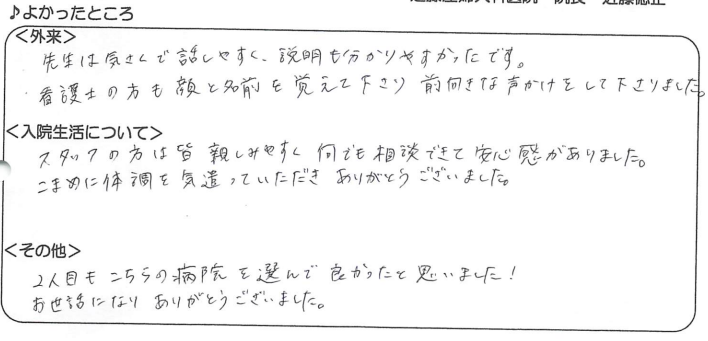 ♪よかったところ
<外来>
先生は気さくで話しやすく、説明も分かりやすかったです。
・看護士の方も顔と名前を覚えて下さり前向きな声かけをして下さりました。
<入院生活について>
スタッフの方は皆親しみやすく何でも相談できて安心感がありました。
こまめに体調を気遣っていただきありがとうございました。
<その他>
2人目もこちらの病院を選んで良かったと思いました!
お世話になりありがとうございました。